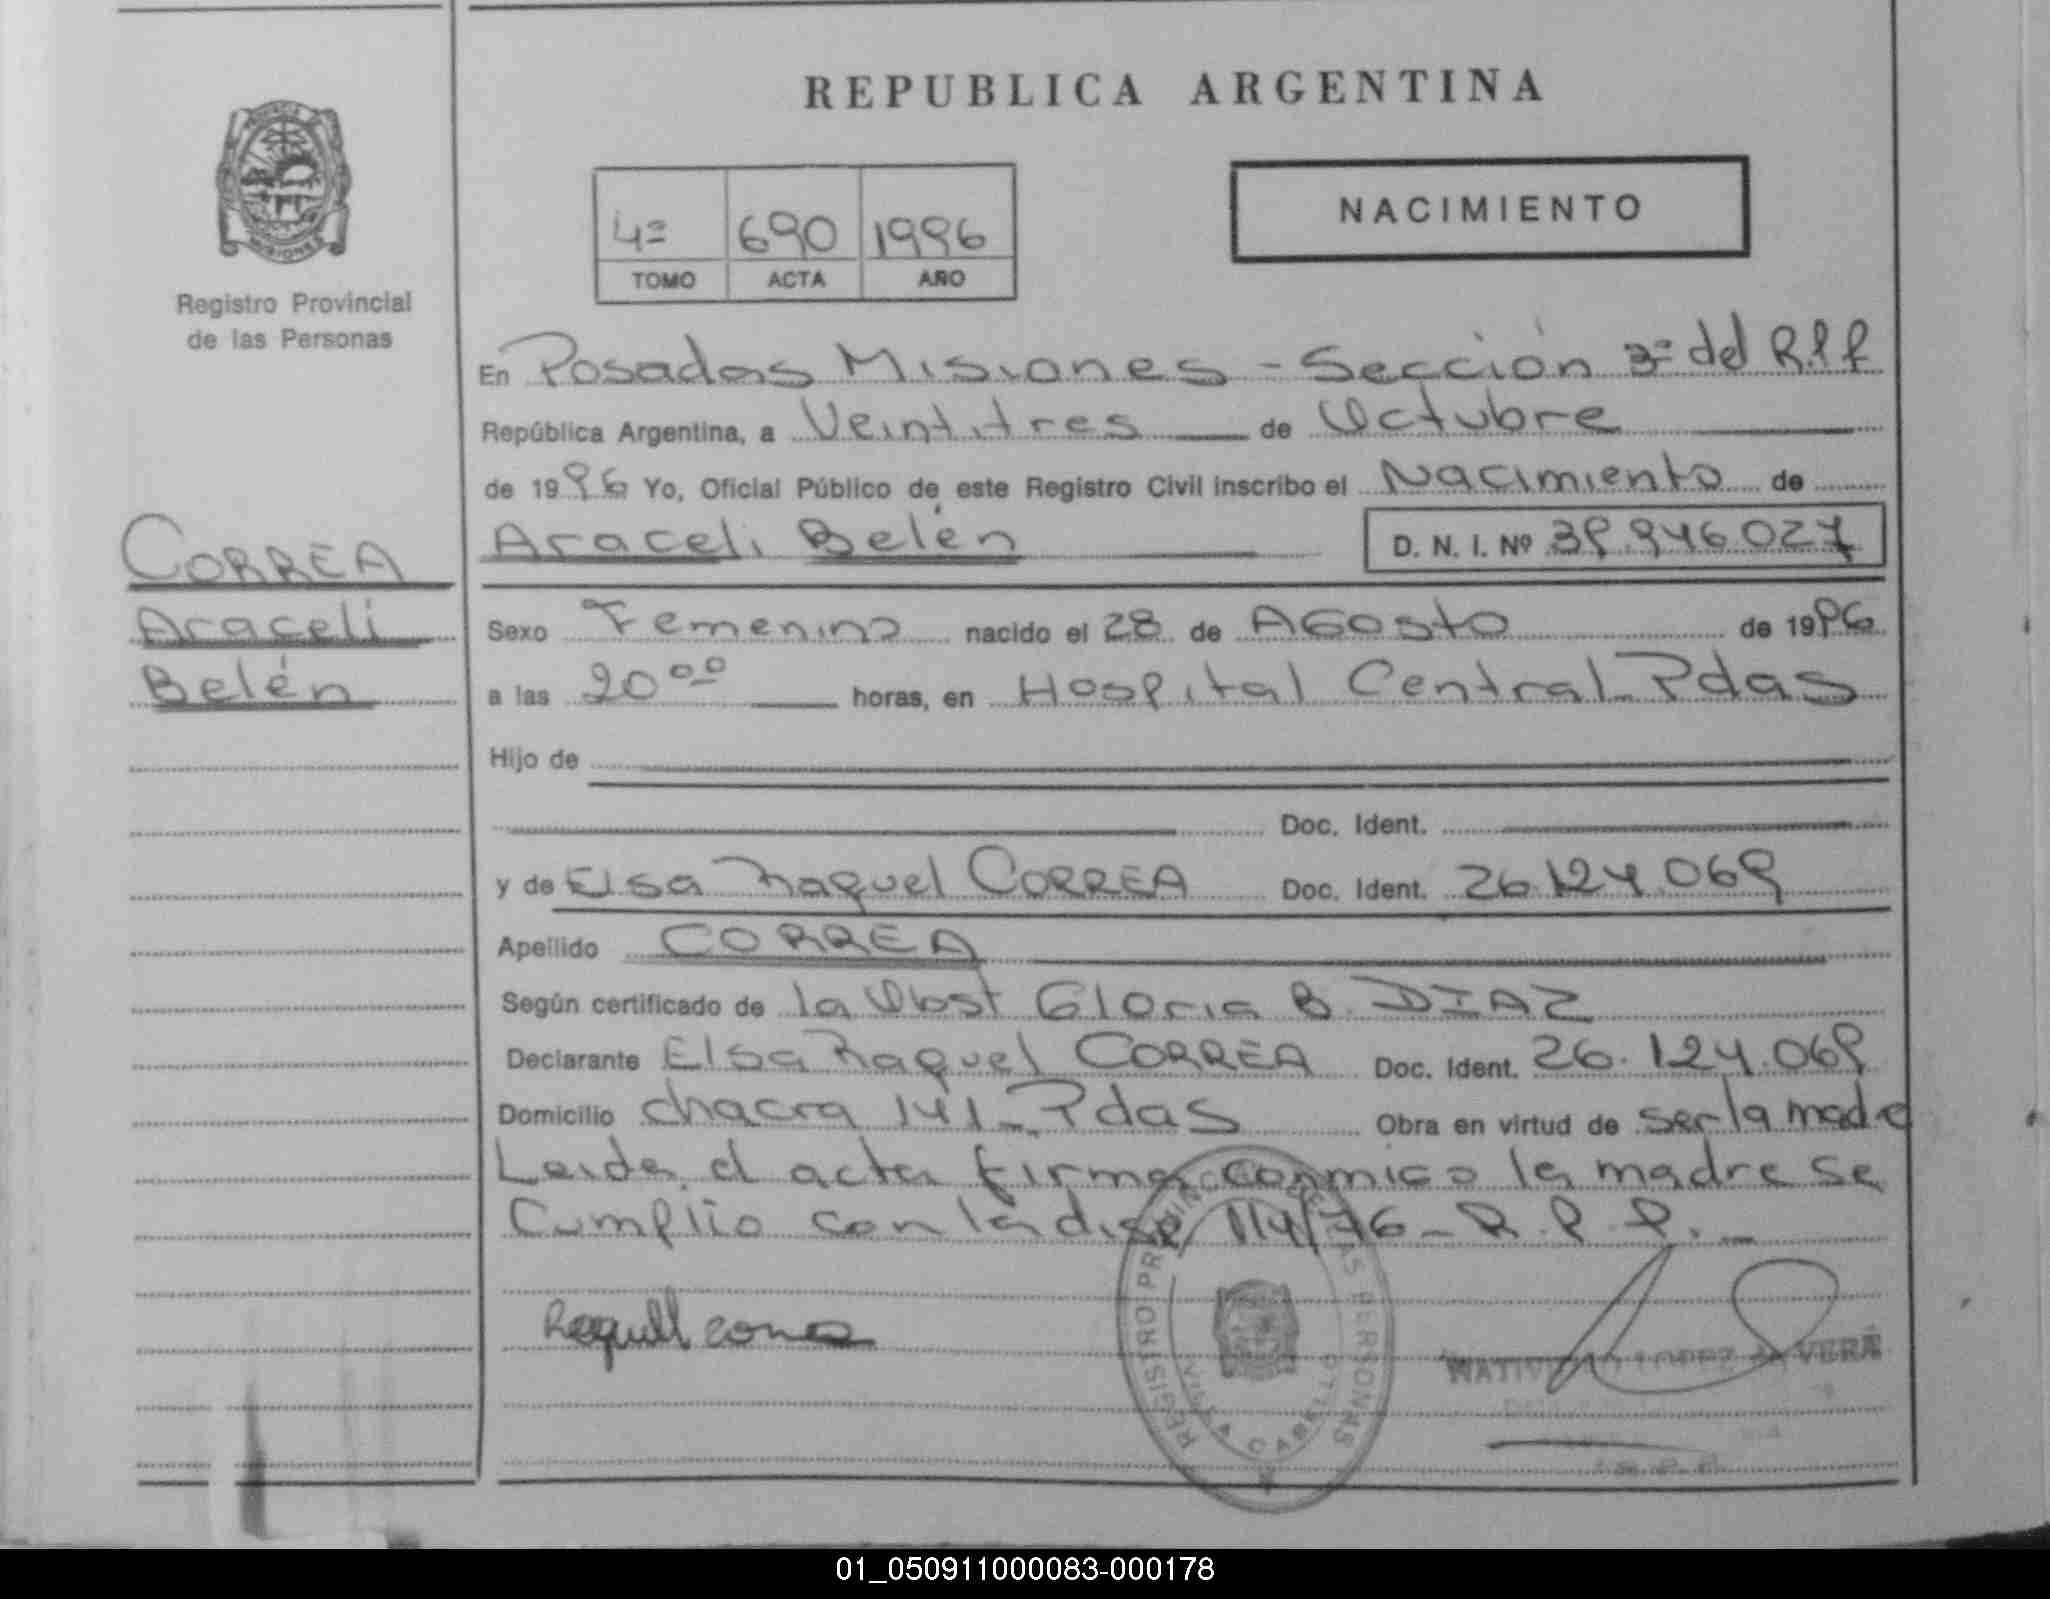 REPUBLICA ARGENTINA
NACIMIENTO
4º 690 1996
TOMO ACTA AÑO
MISIONES
Registro Provincial
de las Personas
CORREA
Araceli
Belén
En Posadas Misiones - Sección 3º del R.P.P
República Argentina, a Veintitres de Octubre
de 1996 Yo, Oficial Público de este Registro Civil inscribo el Nacimiento de
Araceli Belén D. N. I. Nº 39.946.027
Sexo Femenino nacido el 28 de AGosto de 1996
a las 20 00 horas, en Hospital Central Pdas
Hijo de
Doc. Ident.
y de Elsa Raquel CORREA Doc. Ident. 26.124.069
Apellido CORREA
Según certificado de la Obst Gloria B. DIAZ
Declarante Elsa Raquel CORREA Doc. Ident. 26.124.069
Domicilio chacra 141_Pdas Obra en virtud de ser la madre
Leida el acta firma conmigo la madre se
Cumplio con la disp 114/76 - R.P.P.
REGISTRO PROVINCIAL DE LAS PERSONAS
VILLA CABELLO
LOPEZ de VERA
01_050911000083-000178